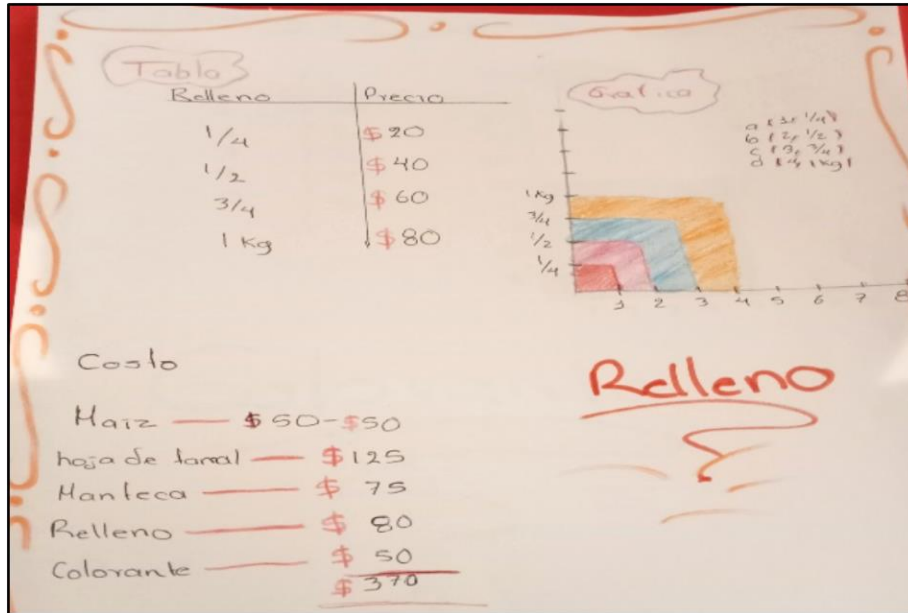 Tabla
Relleno Precio
1/4 $20
1/2 $40
3/4 $60
1 Kg $80
Grafica
a (1, 1/4)
b (2, 1/2)
c (3, 3/4)
d (4, 1kg)
1 Kg
3/4
1/2
1/4
1 2 3 4 5 6 7 8
Costo
Maiz — $50-$50
hoja de tamal — $125
Manteca — $ 75
Relleno — $ 80
Colorante — $ 50
$ 370
Relleno